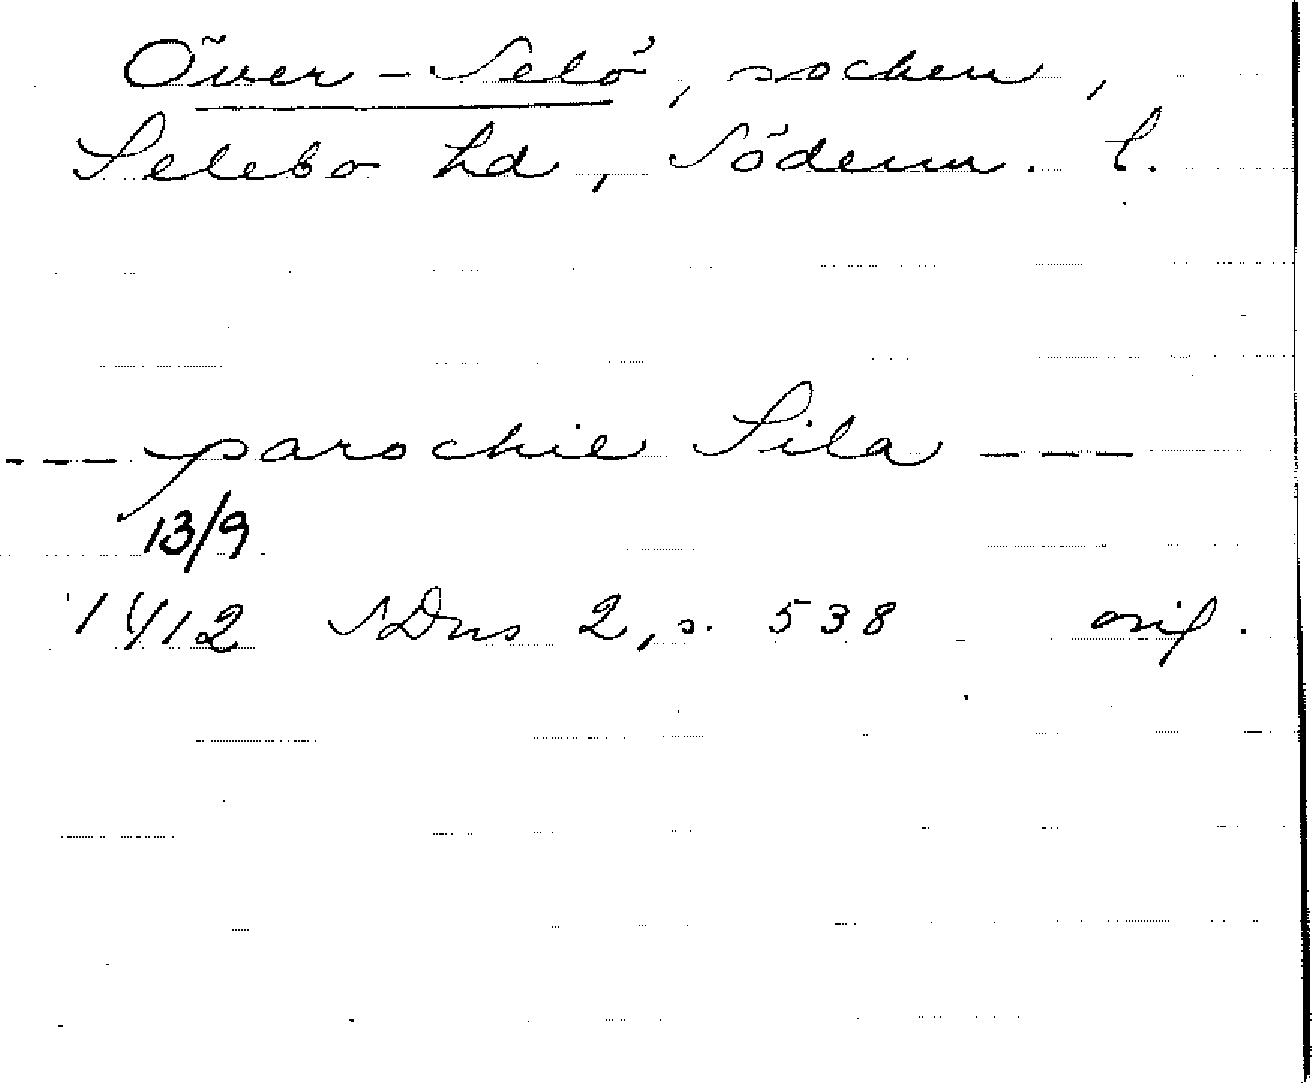 Över-Selö, socken,
Selebo hd, Söderm. l.
--- parochie Sila ---
13/9
1412 SDns 2, s. 538 orig.